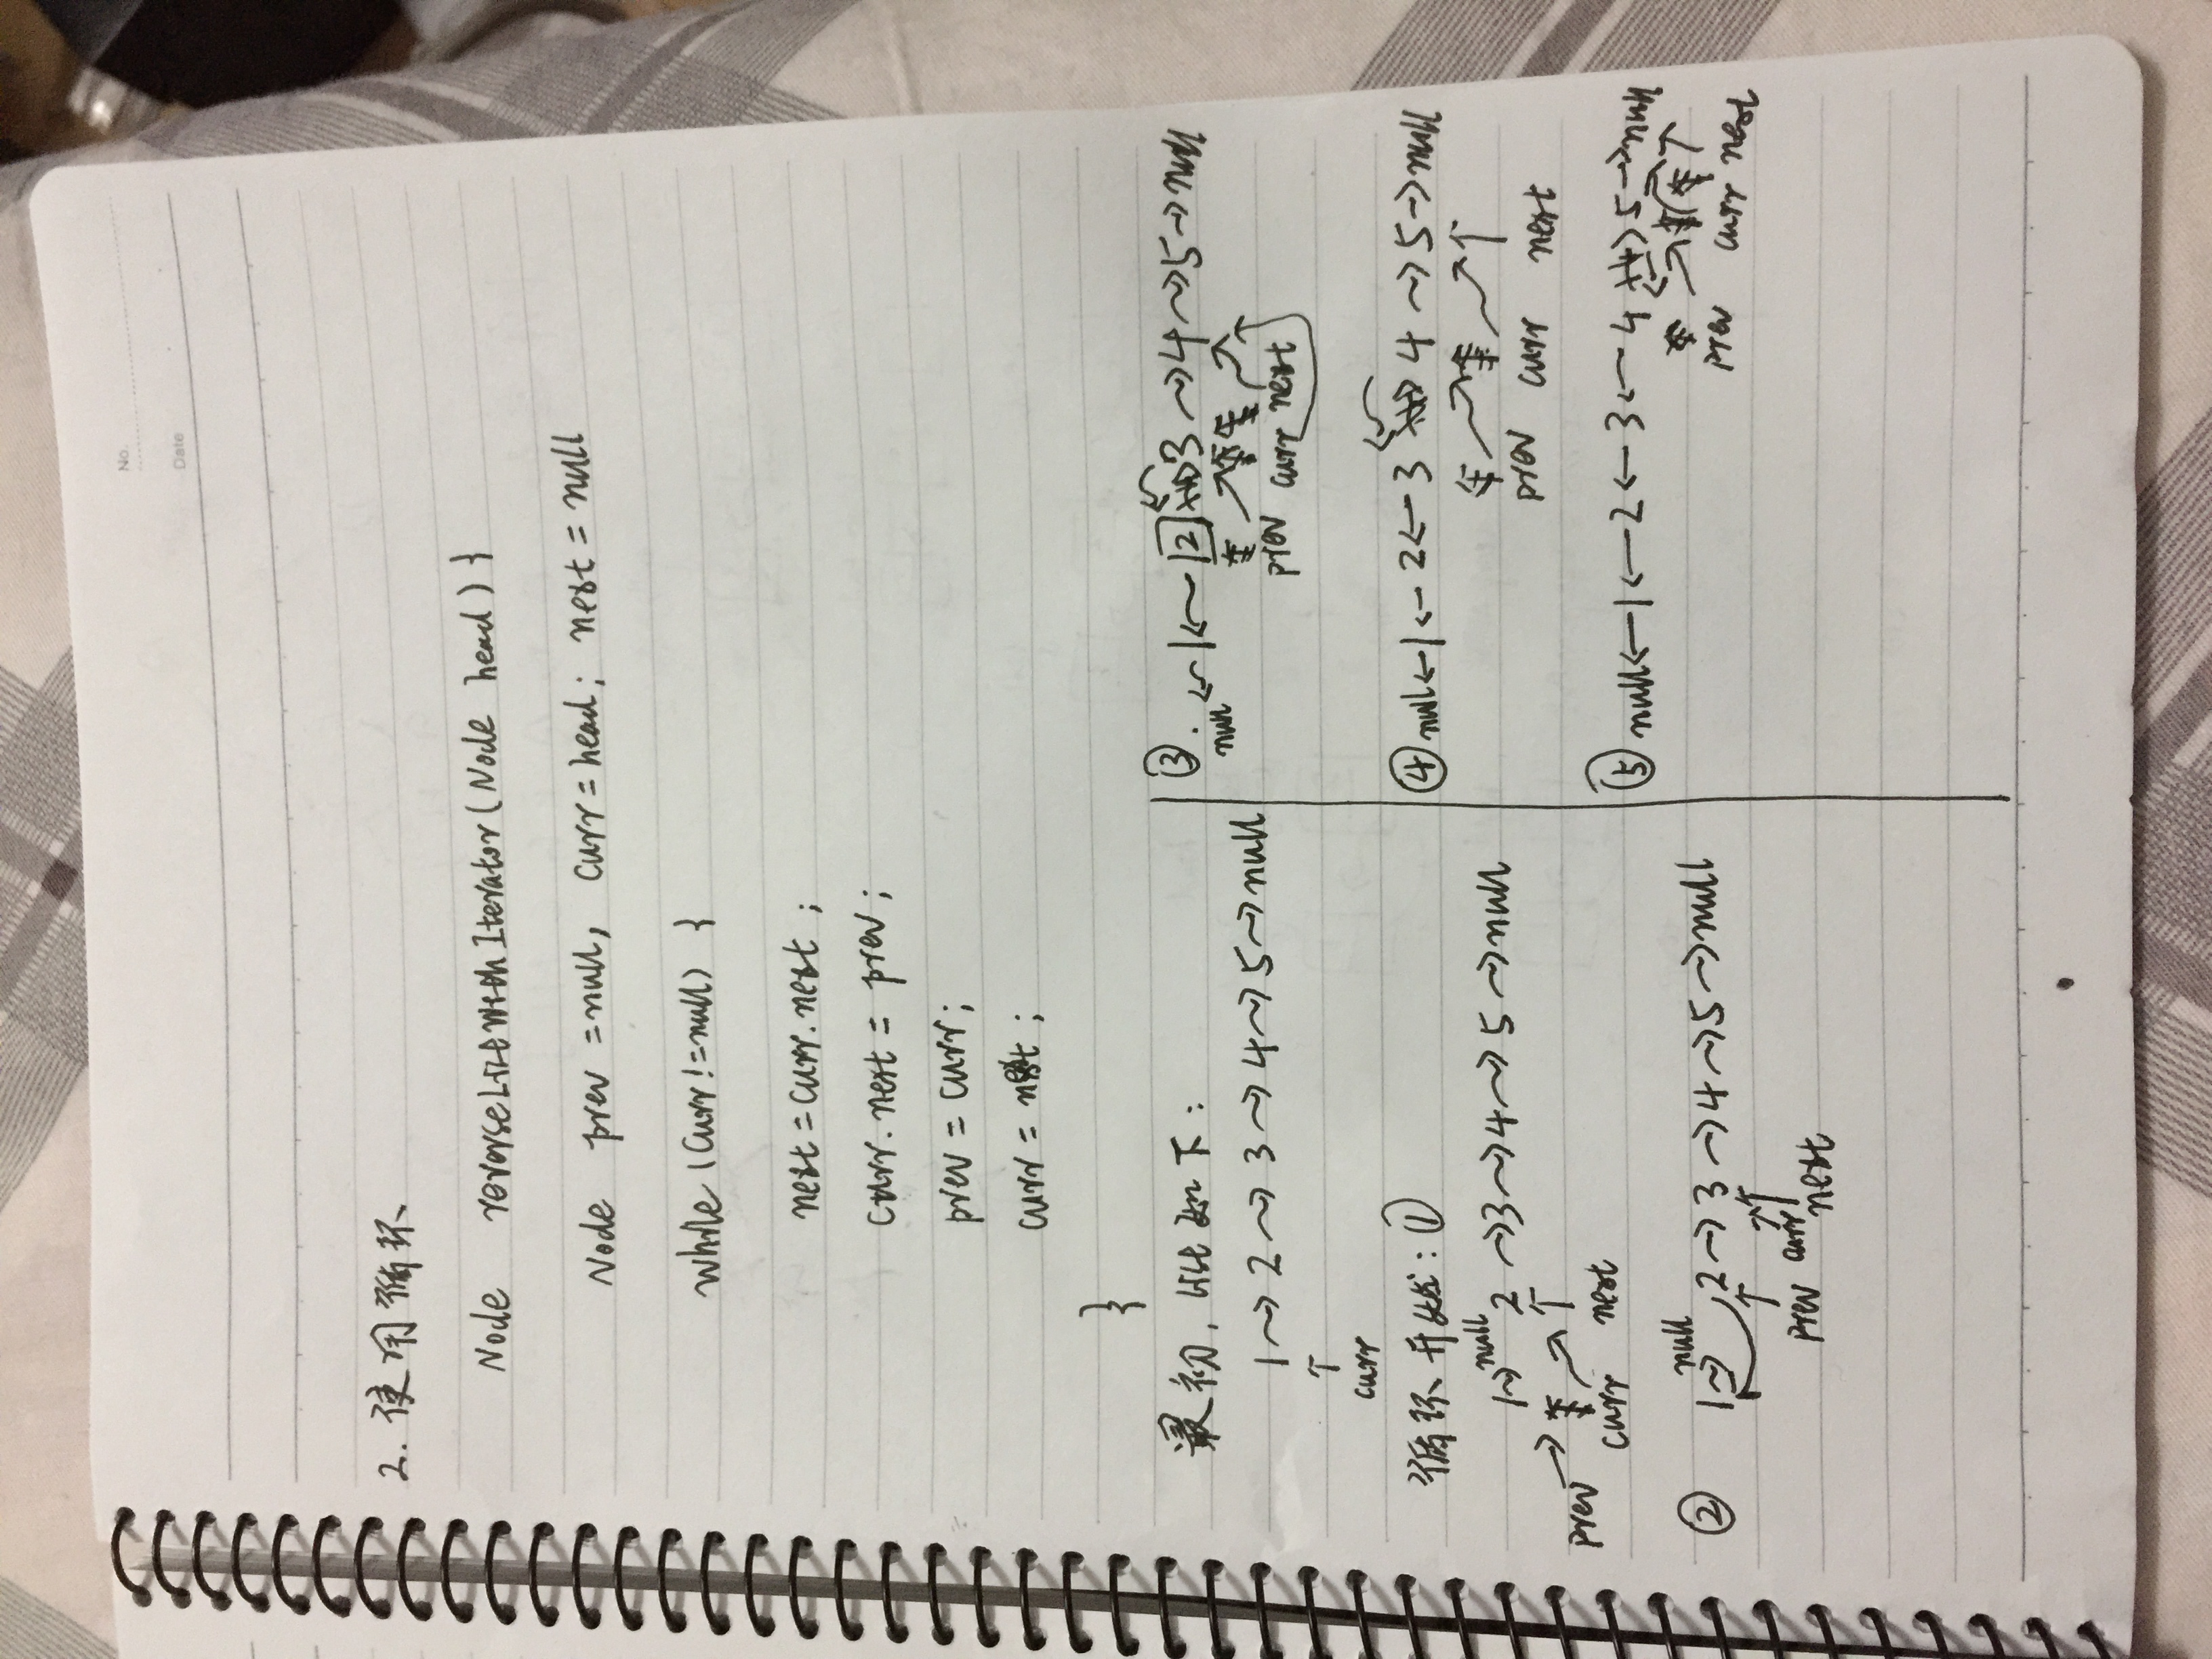 No.
Date
2. 使用循环
Node reverseListWithIterator(Node head) {
Node prev = null, curr = head; next = null
while (curr != null) {
next = curr.next ;
curr. next = prev ;
prev = curr;
curr = next ;
}
最初, list 如下 :
1 → 2 → 3 → 4 → 5 → null
↑
curr
循环开始 : ①
null
1 → 2 → 3 → 4 → 5 → null
prev → ↗ ↑
curr next
② null
1 → 2 → 3 → 4 → 5 → null
↑ ↗ ↑
prev curr next
③. null ← 1 ← 2 → 3 → 4 → 5 → null
prev curr next
④ null ← 1 ← 2 ← 3 → 4 → 5 → null
prev curr next
⑤ null ← 1 ← 2 ← 3 ← 4 → 5 → null
prev curr next